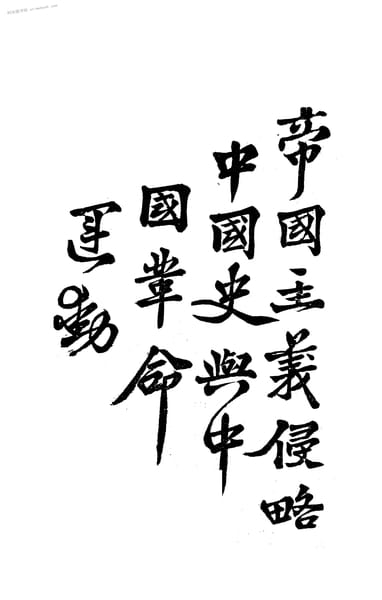 帝國主義侵略
中國史與中
國革命
運動